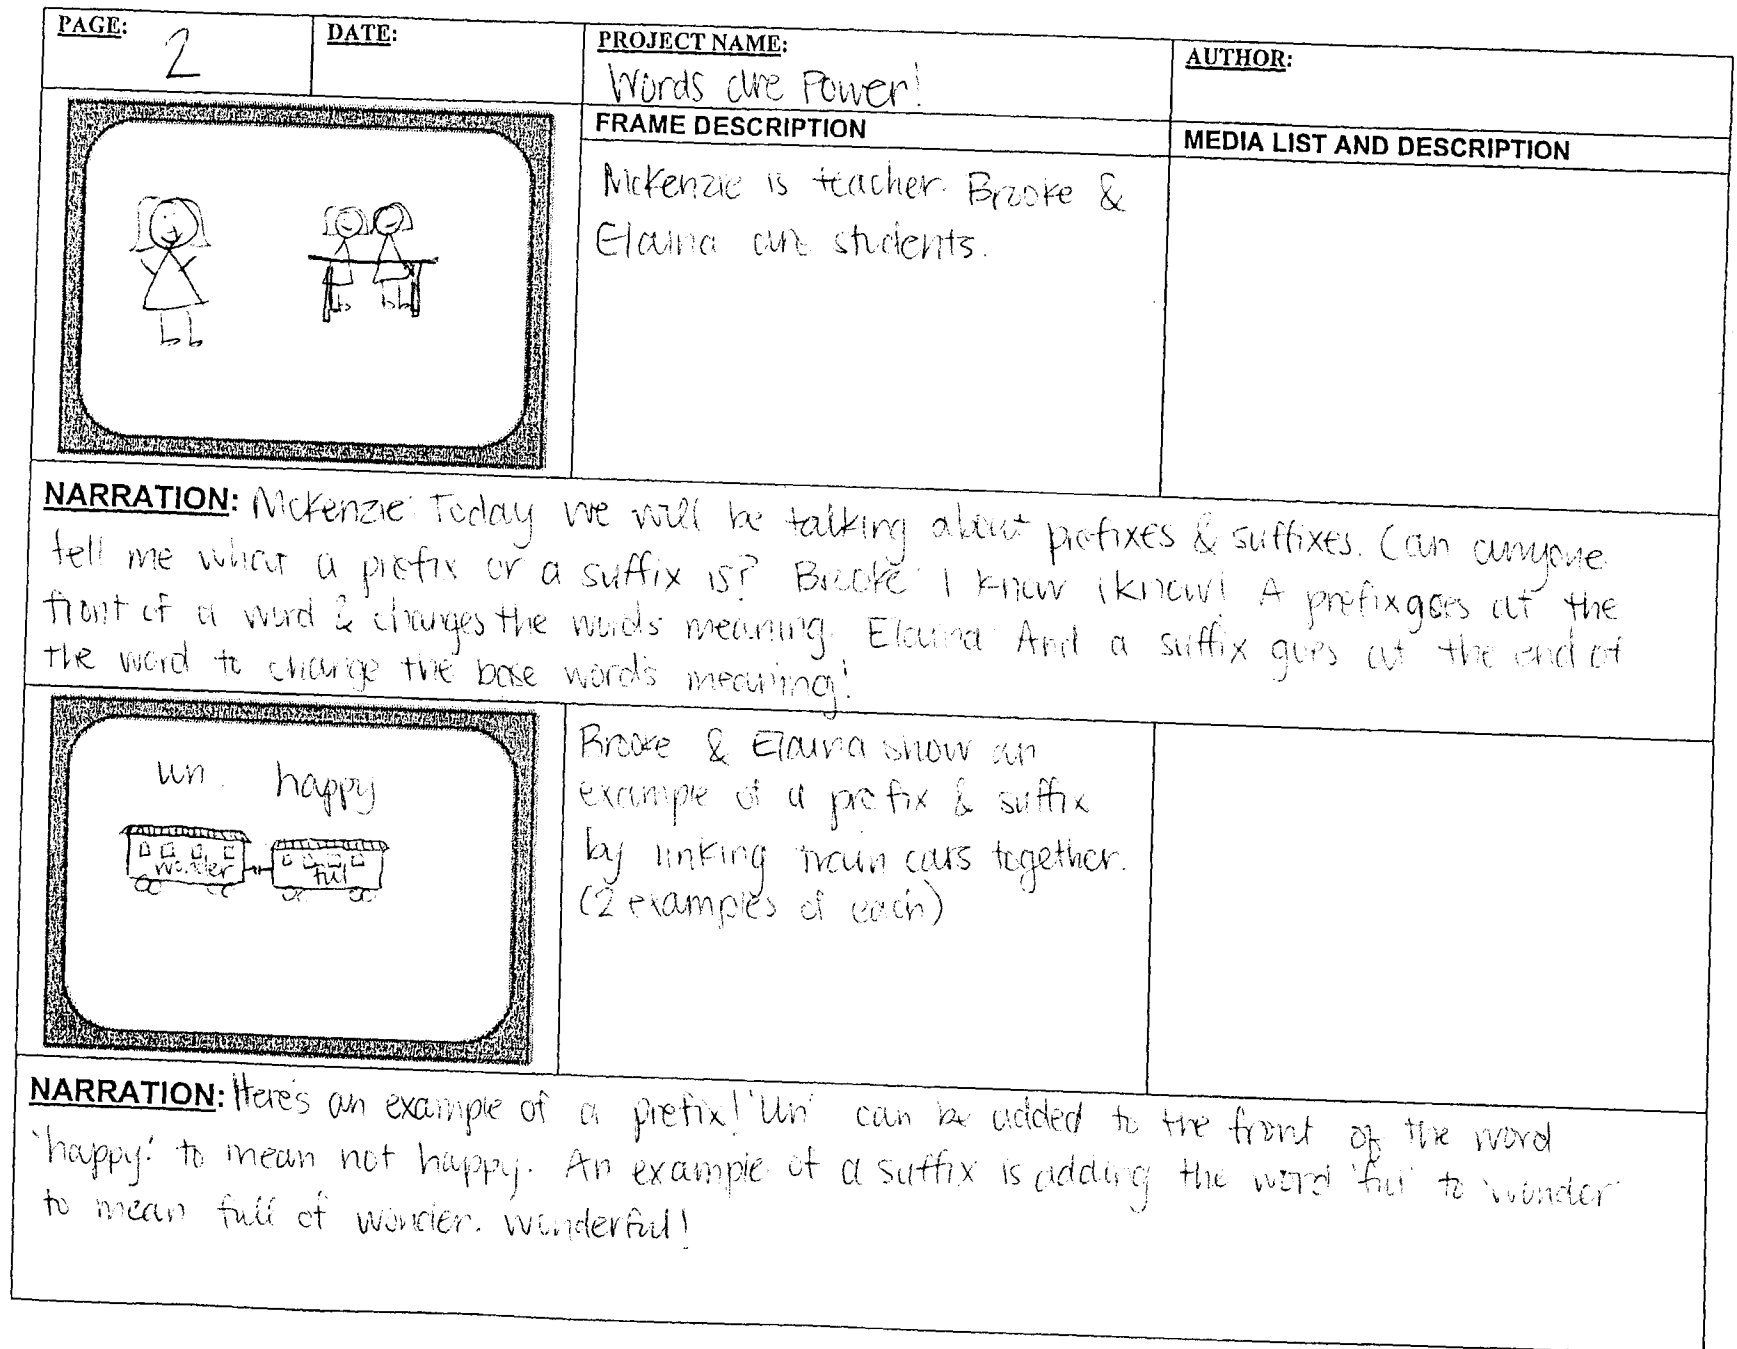 PAGE: 2
DATE:
PROJECT NAME:
Words are Power!
AUTHOR:
FRAME DESCRIPTION
MEDIA LIST AND DESCRIPTION
McKenzie is teacher. Brooke &
Elaina are students.
NARRATION: McKenzie: Today we will be talking about prefixes & suffixes. Can anyone
tell me what a prefix or a suffix is? Brooke: I know i know! A prefix goes at the
front of a word & changes the words meaning. Elaina: And a suffix goes at the end of
the word to change the base word's meaning!
un happy
wonder ful
Brooke & Elaina show an
example of a prefix & suffix
by linking train cars together.
(2 examples of each)
NARRATION: Here's an example of a prefix! 'Un' can be added to the front of the word
'happy' to mean not happy. An example of a suffix is adding the word 'ful' to 'wonder'
to mean full of wonder. Wonderful!